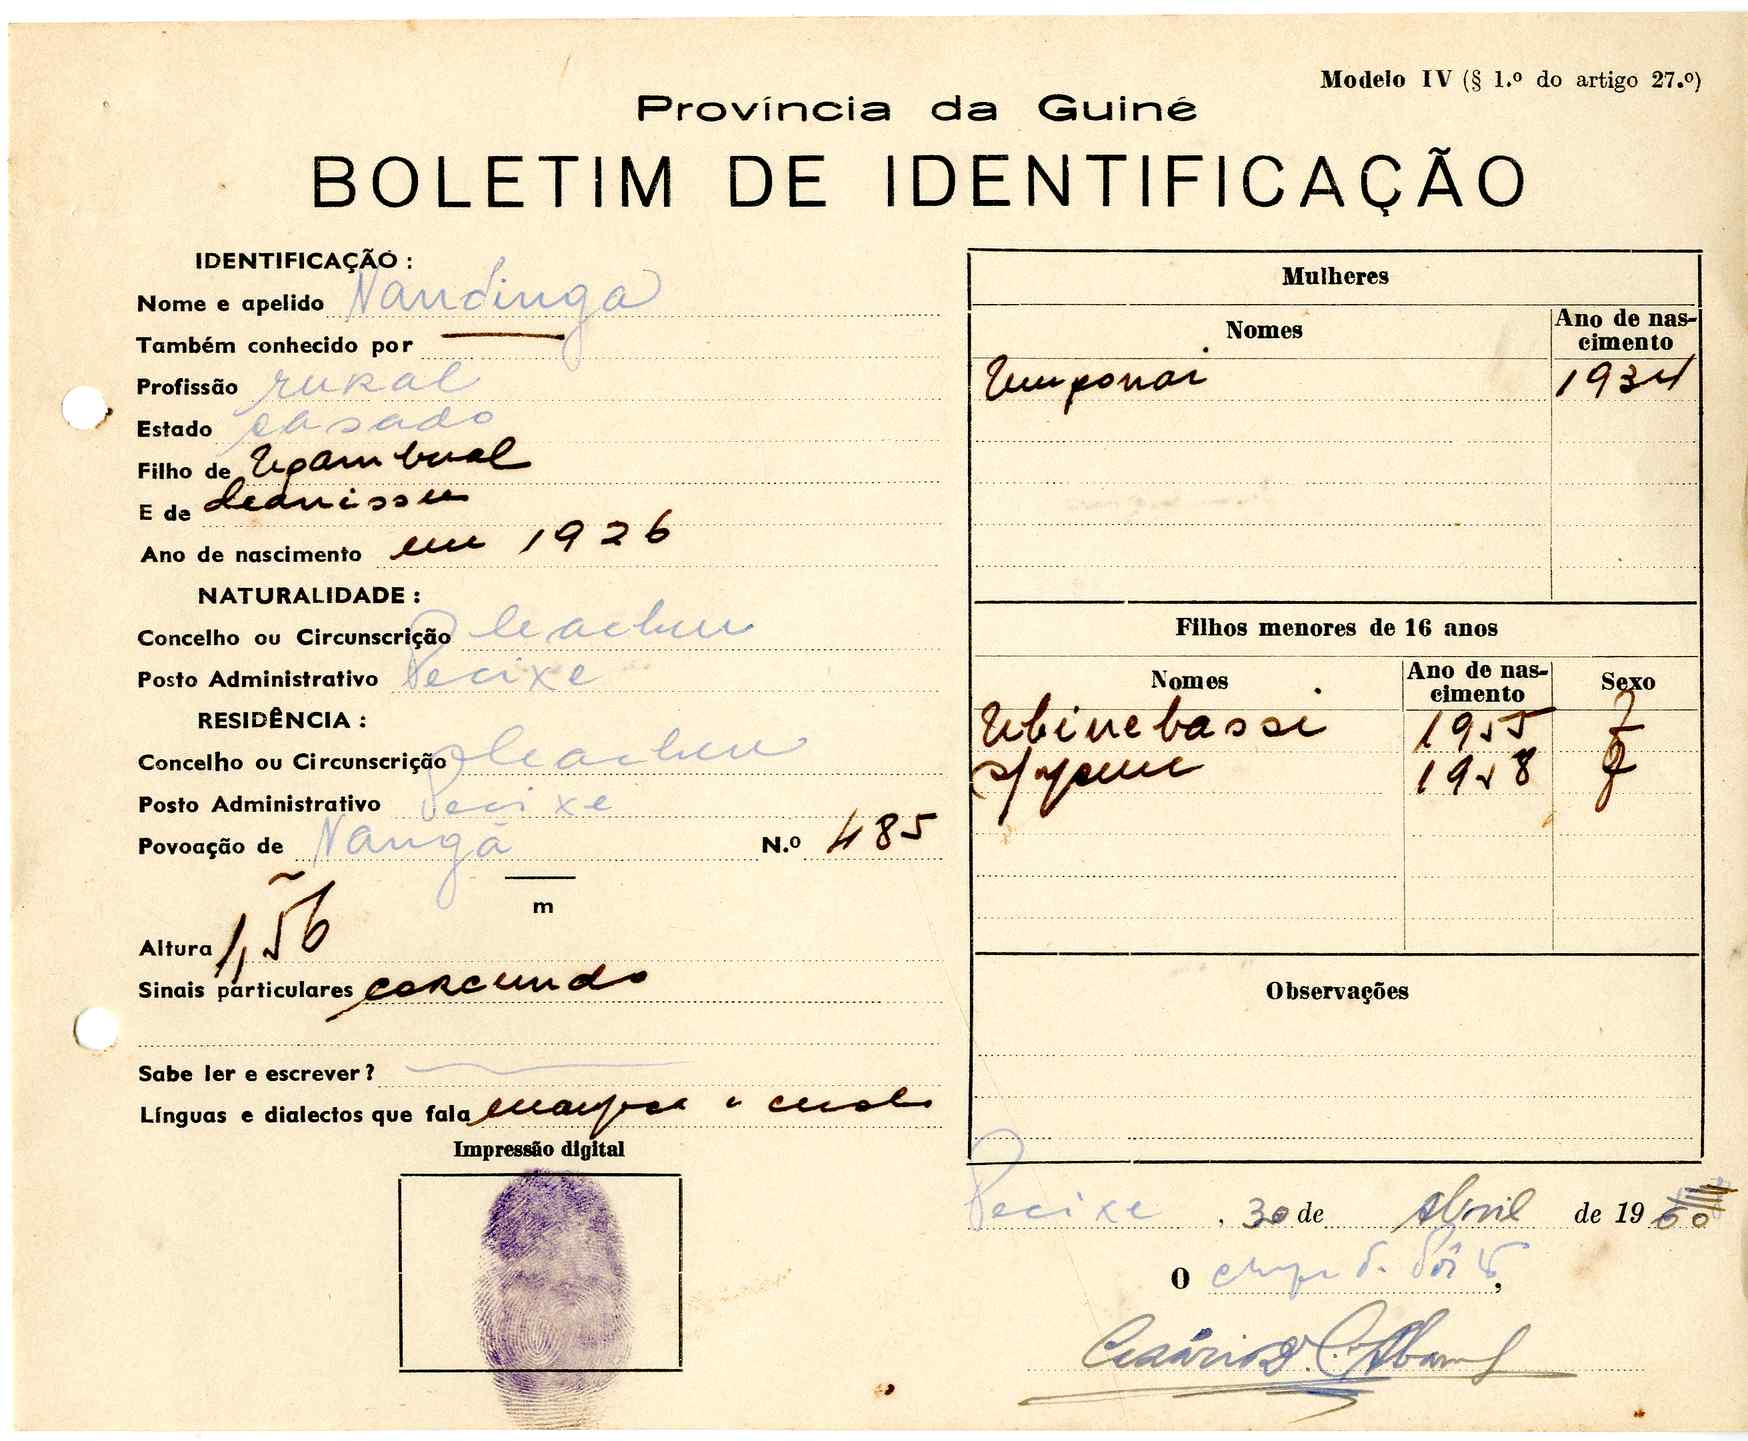 Modelo IV (§ 1.º do artigo 27.º)
Província da Guiné
BOLETIM DE IDENTIFICAÇÃO
IDENTIFICAÇÃO :
Nome e apelido Nandinga
Também conhecido por
Profissão rural
Estado casado
Filho de
E de
Ano de nascimento em 1926
NATURALIDADE :
Concelho ou Circunscrição Cacheu
Posto Administrativo Pecixe
RESIDÊNCIA :
Concelho ou Circunscrição Cacheu
Posto Administrativo Pecixe
Povoação de Nangã N.º 485
m
Altura 1,56
Sinais particulares corcundo
Sabe ler e escrever?
Línguas e dialectos que fala
Impressão digital
Mulheres
Nomes
Ano de nascimento
1934
Filhos menores de 16 anos
Nomes
Ano de nascimento
Sexo
1955
1958
Observações
Pecixe, 30 de Abril de 1960
O